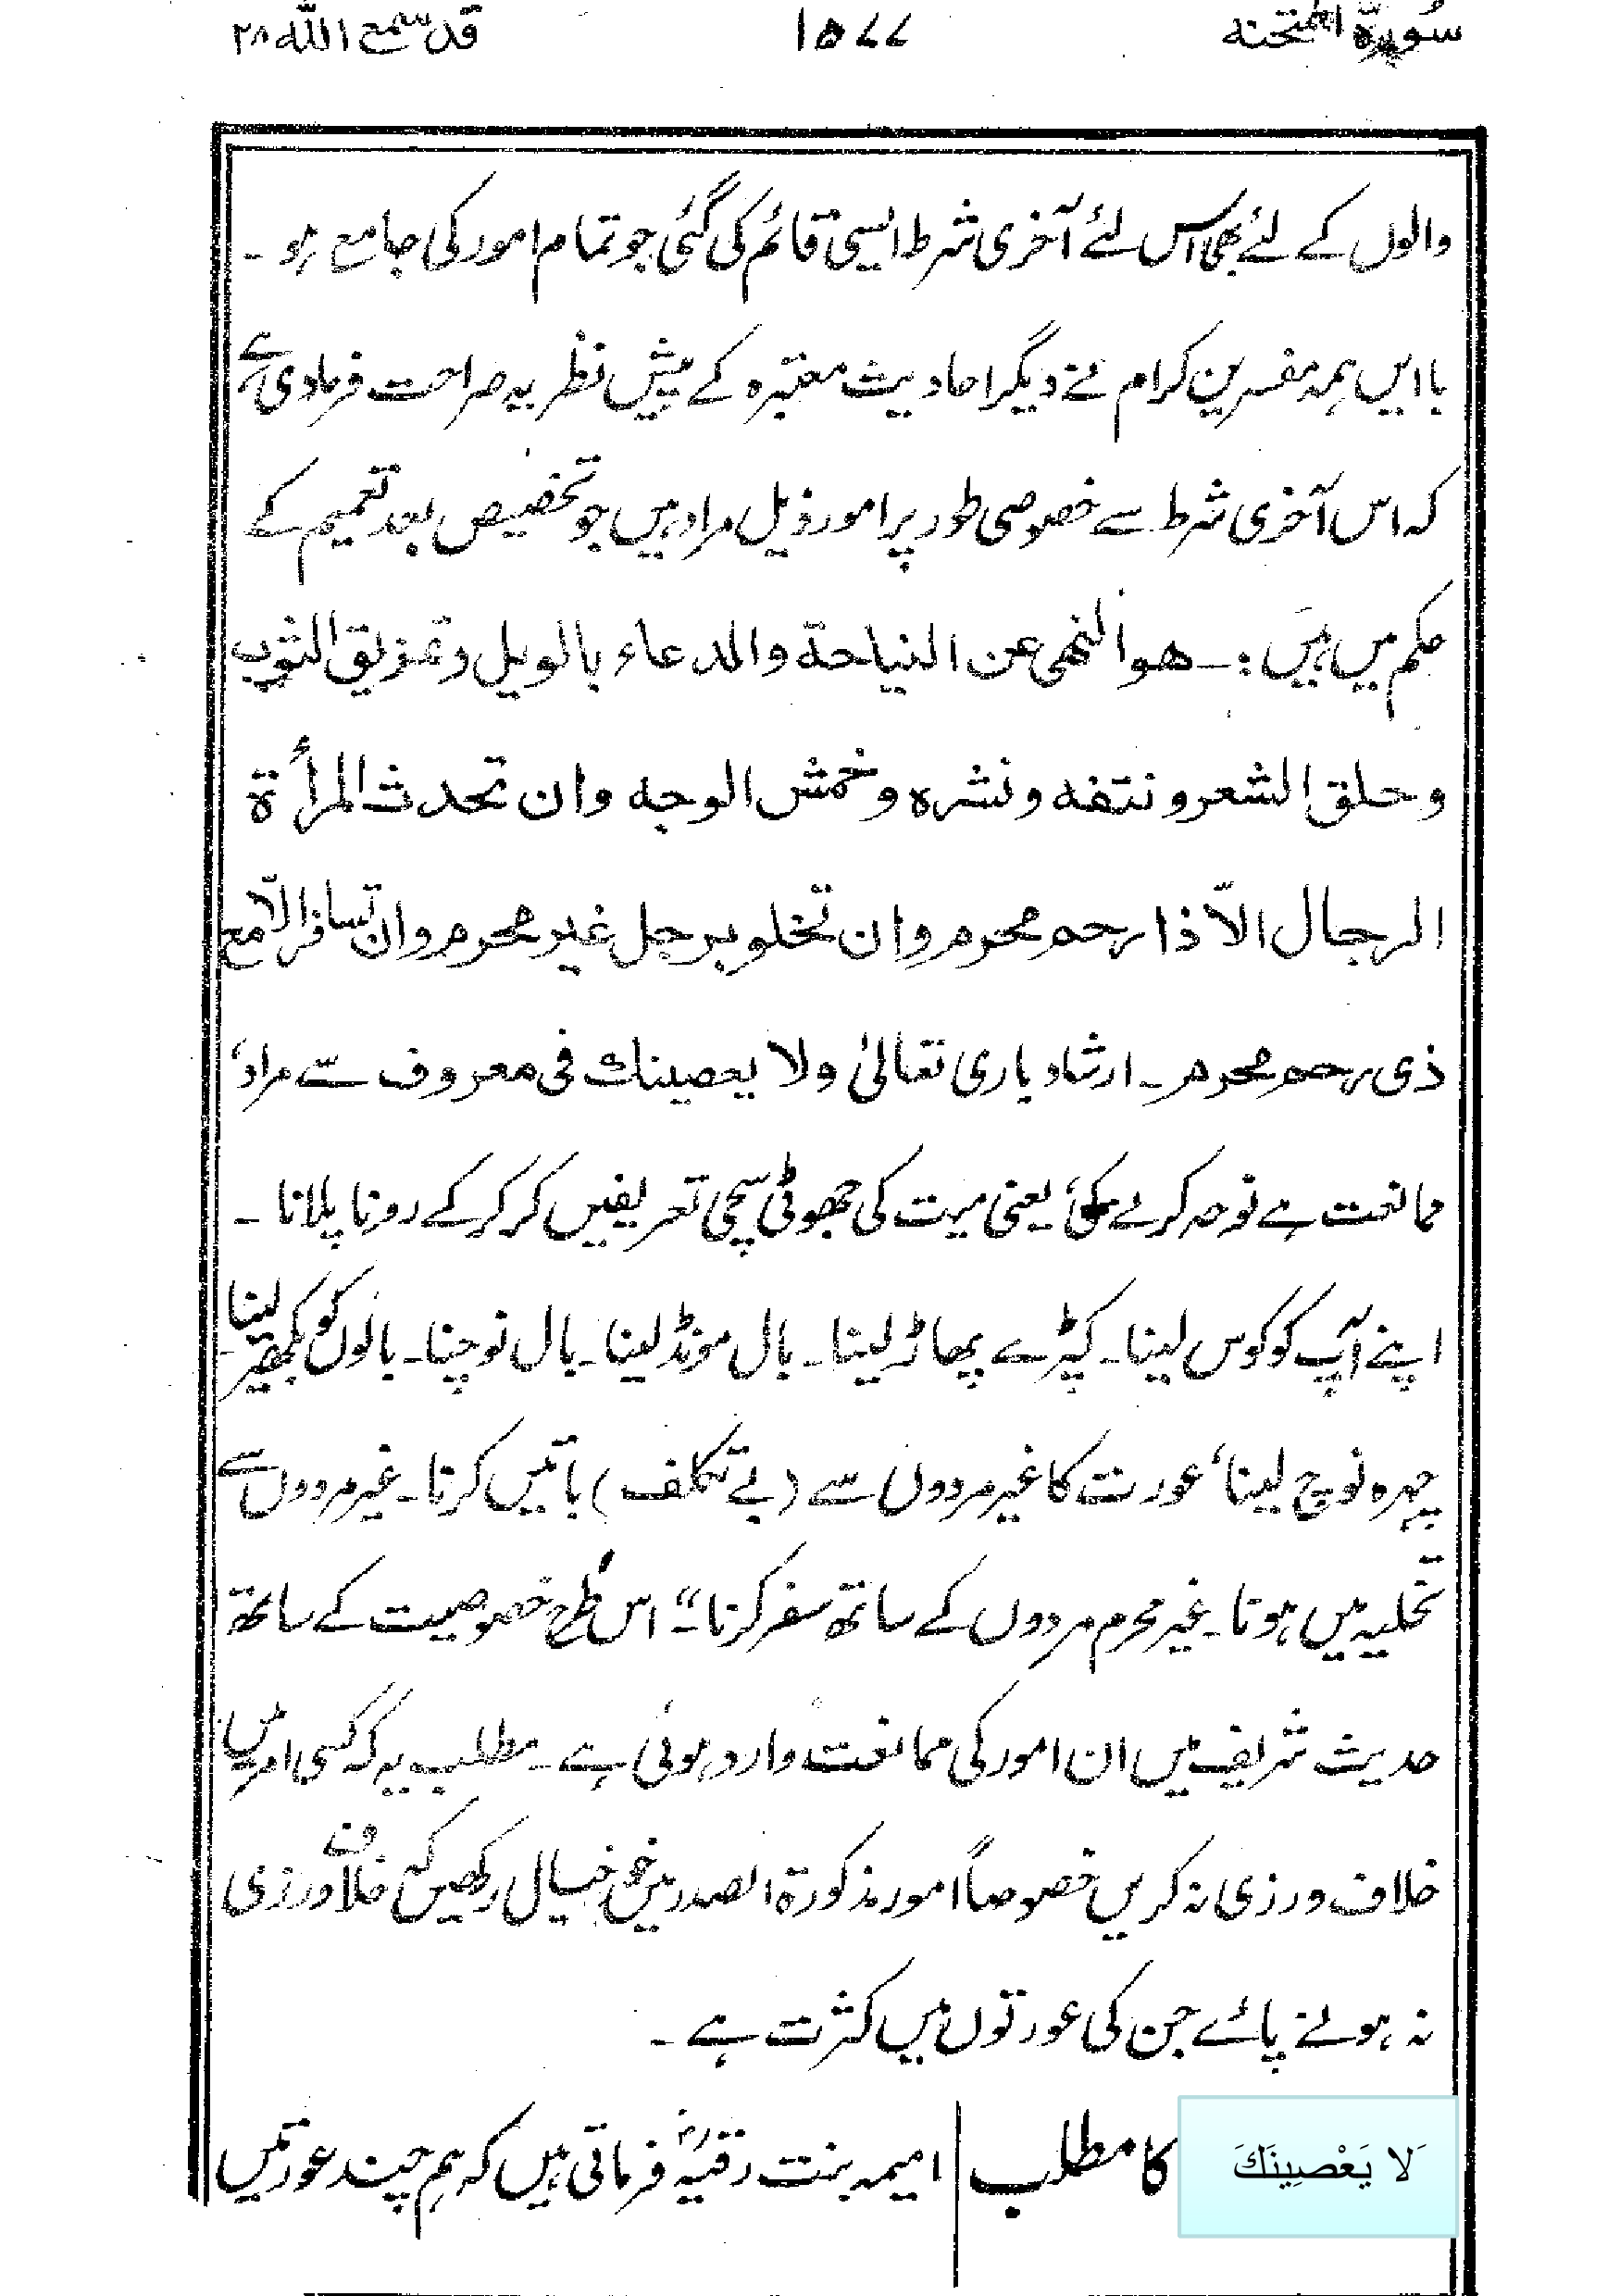 سُورۃ الممتحنہ ۱۵۷۷ قد سمع اللہ ۲۸
والوں کے لئے بھی اس لئے آخری شرط ایسی قائم کی گئی جو تمام امور کی جامع ہو ۔
با ایں ہمہ مفسرین کرام نے دیگر احادیث معتبرہ کے پیش نظر یہ صراحت فرمادی ہے
کہ اس آخری شرط سے خصوصی طور پر امور ذیل مراد ہیں جو تخصیص بعد تعمیم کے
حکم میں ہیں :۔ ھو النھی عن النیاحة والدعاء بالویل وتمزیق الثوب
وحلق الشعر ونتفه ونشره وخمش الوجه وان تحدث المرأة
الرجال الاّ ذا رحم محرم وان تخلو برجل غیر محرم وان تسافر الاّ مع
ذی رحم محرم ۔ ارشاد باری تعالیٰ ولا یعصینك فی معروف سے مراد،
ممانعت ہے نوحہ کرنے کی، یعنی میت کی جھوٹی سچی تعریفیں کر کر کے رونا پلانا ۔
اپنے آپ کو کوس لینا۔ کپڑے پھاڑ لینا۔ بال مونڈ لینا۔ بال نوچنا۔ بالوں کو بکھیر لینا۔
چہرہ نوچ لینا، عورت کا غیر مردوں سے (بے تکلف) باتیں کرنا۔ غیر مردوں سے
تخلیہ میں ہونا۔ غیر محرم مردوں کے ساتھ سفر کرنا"۔ اس طرح خصوصیت کے ساتھ
حدیث شریف میں ان امور کی ممانعت وارد ہوئی ہے۔ مطلب یہ کہ کسی امر میں
خلاف ورزی نہ کریں خصوصاً امور مذکورۃ الصدر میں خیال رکھیں کہ خلاف ورزی
نہ ہونے پائے جن کی عورتوں میں کثرت ہے ۔
لَا يَعْصِينَكَ کا مطلب | امیمہ بنت رقیہؓ فرماتی ہیں کہ ہم چند عورتیں